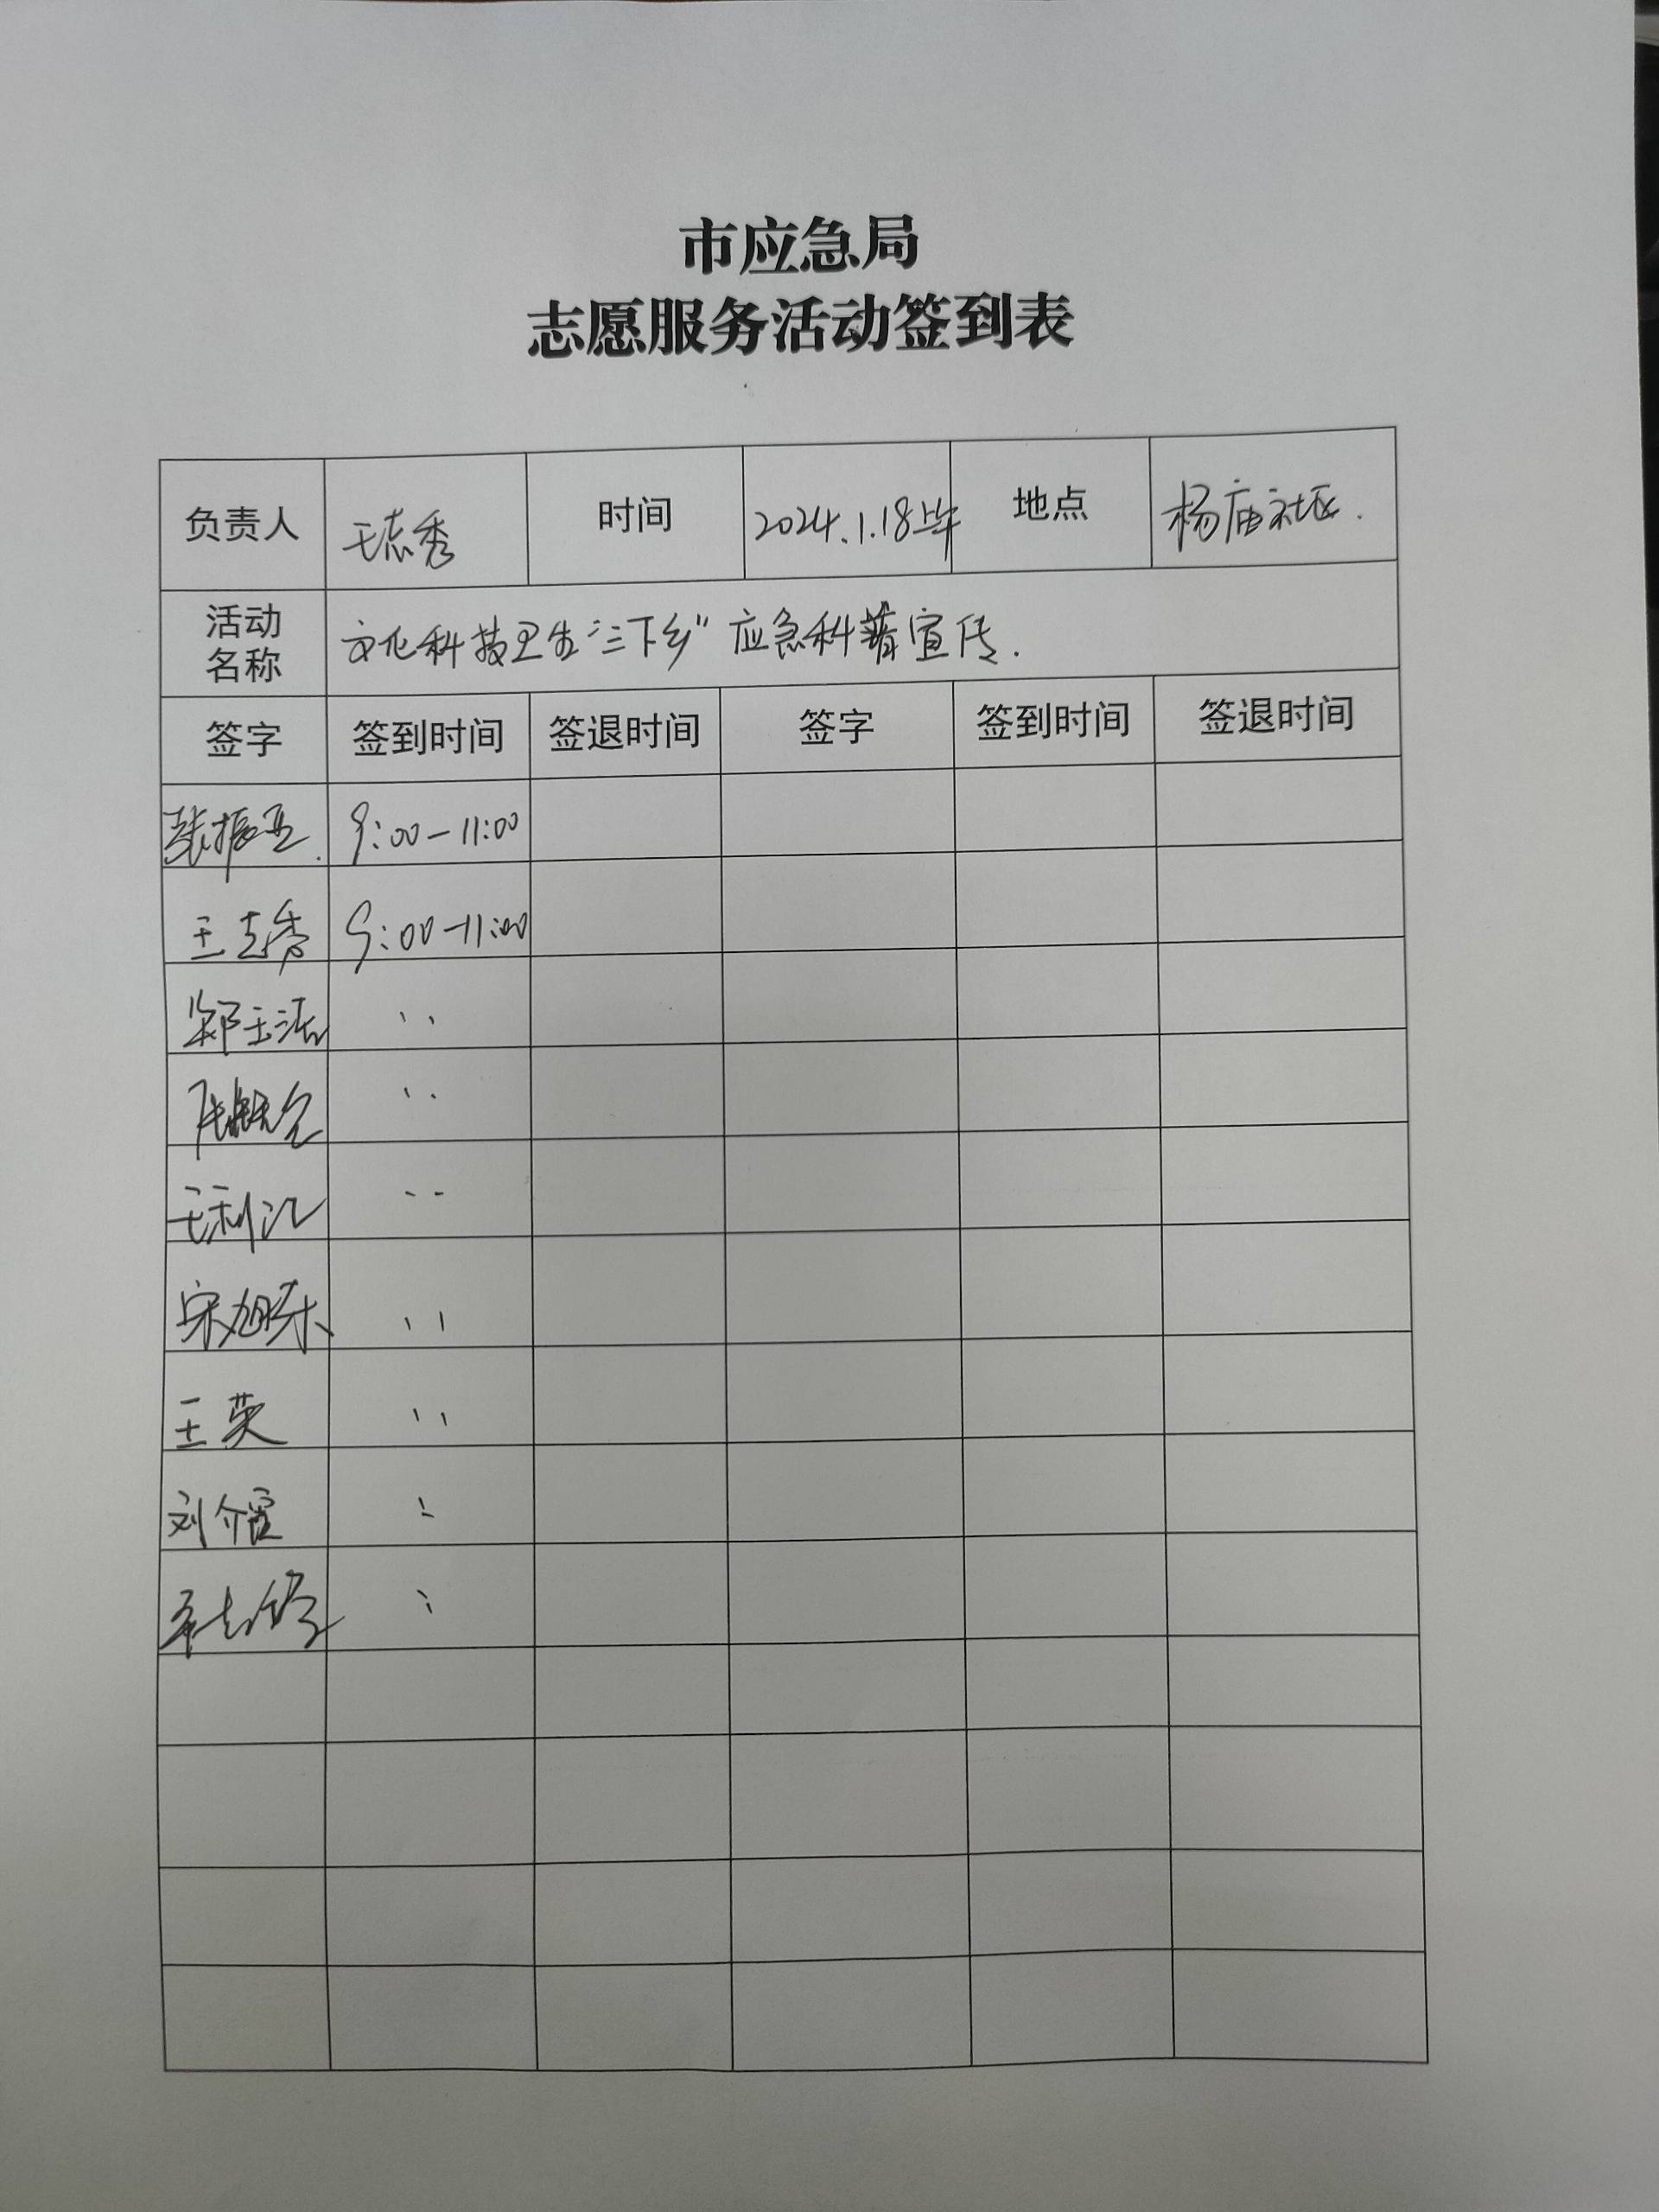 市应急局
志愿服务活动签到表
负责人 王志秀 时间 2024.1.18上午 地点 杨庙社区.
活动名称 文化科技卫生“三下乡”应急科普宣传.
签字 签到时间 签退时间 签字 签到时间 签退时间
张振亚. 9:00-11:00
王志秀 9:00-11:00
邹玉洁 〃
〃
王利江 〃
宋旭东 〃
王英 〃
刘 〃
〃